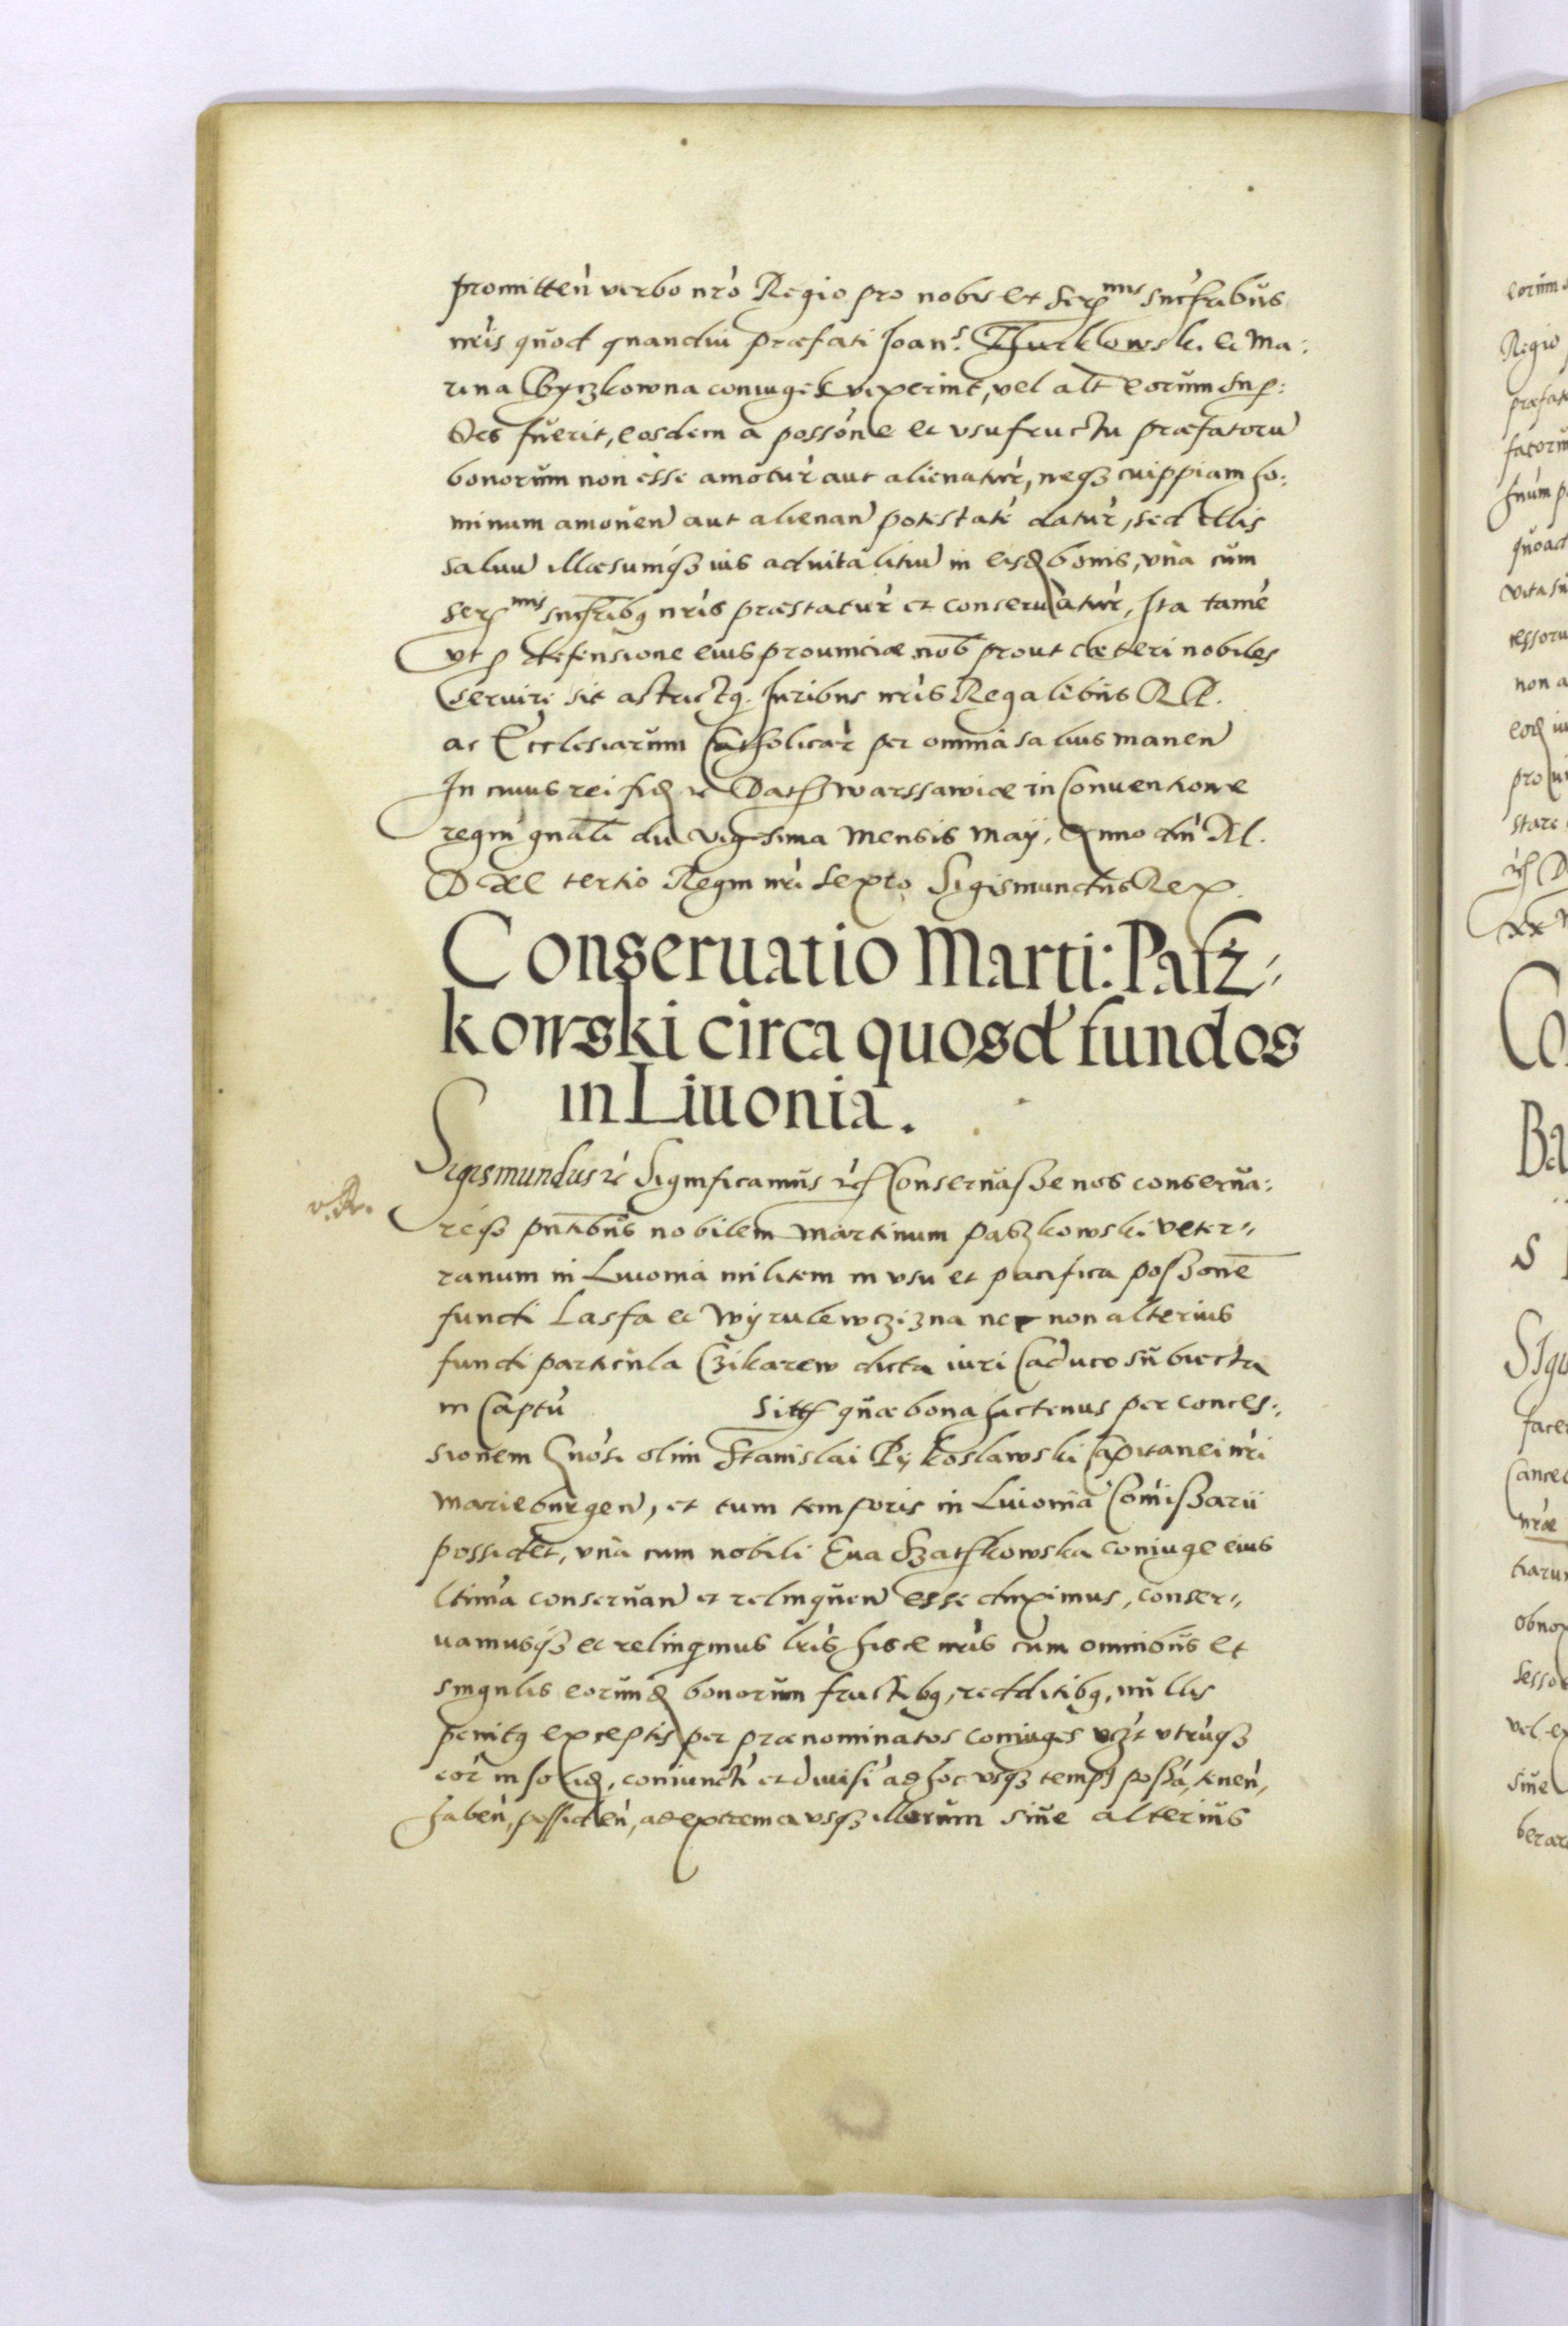 promitteń verbo nrò Regio pro nobis et Ser^mis Sucrībus
nris quod quandiu præfati Joan^s. Thurkowski et Ma:
rina Byczkowna coniuges vixerint, vel alt eorum sup:
stes fuerit, eosdem a possone et vsufructu præfatoru
bonorum non esse amotur aut alienatur, neqз cuippiam ho:
minum amouen aut alienan potestate datur, sed illis
saluu illæsumqз ius aduitalitiu in eisd bonis, vna cum
Ser^mis sucrībq nris præstatur et conseruatur, Ita tame
vt p defensione eius prouinciæ nob prout cæteri nobiles
seruire sit astrictq. Iuribus nris Regalibus RR.
ac Ecclesiarum Catholicar per omnia saluis manen
In cuius rei fid etc Dat Warssawiæ in Conuentione
regni gnali die vigesima Mensis Maij. Anno dni M.
DcXC tertio Regni nri Sexto Sigismundus Rex.
Conseruatio Marti: Pasz-
kowski circa quosd fundos
in Liuonia.
Sigismundus etc Significamus etc Conseruasse nos conserua:
v. R.
reqз pntibus nobilem Martinum Paszkowski veter-
ranum in Liuonia militem in vsu et pacifica possone
fundi Lasfa et Wyrulewczizna nec non alterius
fundi particula Czikarew dicta iuri Caduco subiecta
in Captu Sitt quæ bona hactenus per conces:
sionem Gnosi olim Stanislai Rykoslawski Capitanei nri
Marieburgen, et tum temporis in Liuonia Comissarii
possidet, vna cum nobili Eua Szatkowska coniuge eius
ltima conseruan et relinquen esse duximus, conser-
uamusqз et relinqmus lris hisce nris cum omnibus et
singulis eorund bonorum fructibq, redditibq, nullis
penitq exceptis per prænominatos coniuges vзt vtruqз
eor in solid, coniuncti et diuisi ad hoc vsqз temps possa, tenen,
haben, possiden, ad extrema vsqз illorum siue alterius